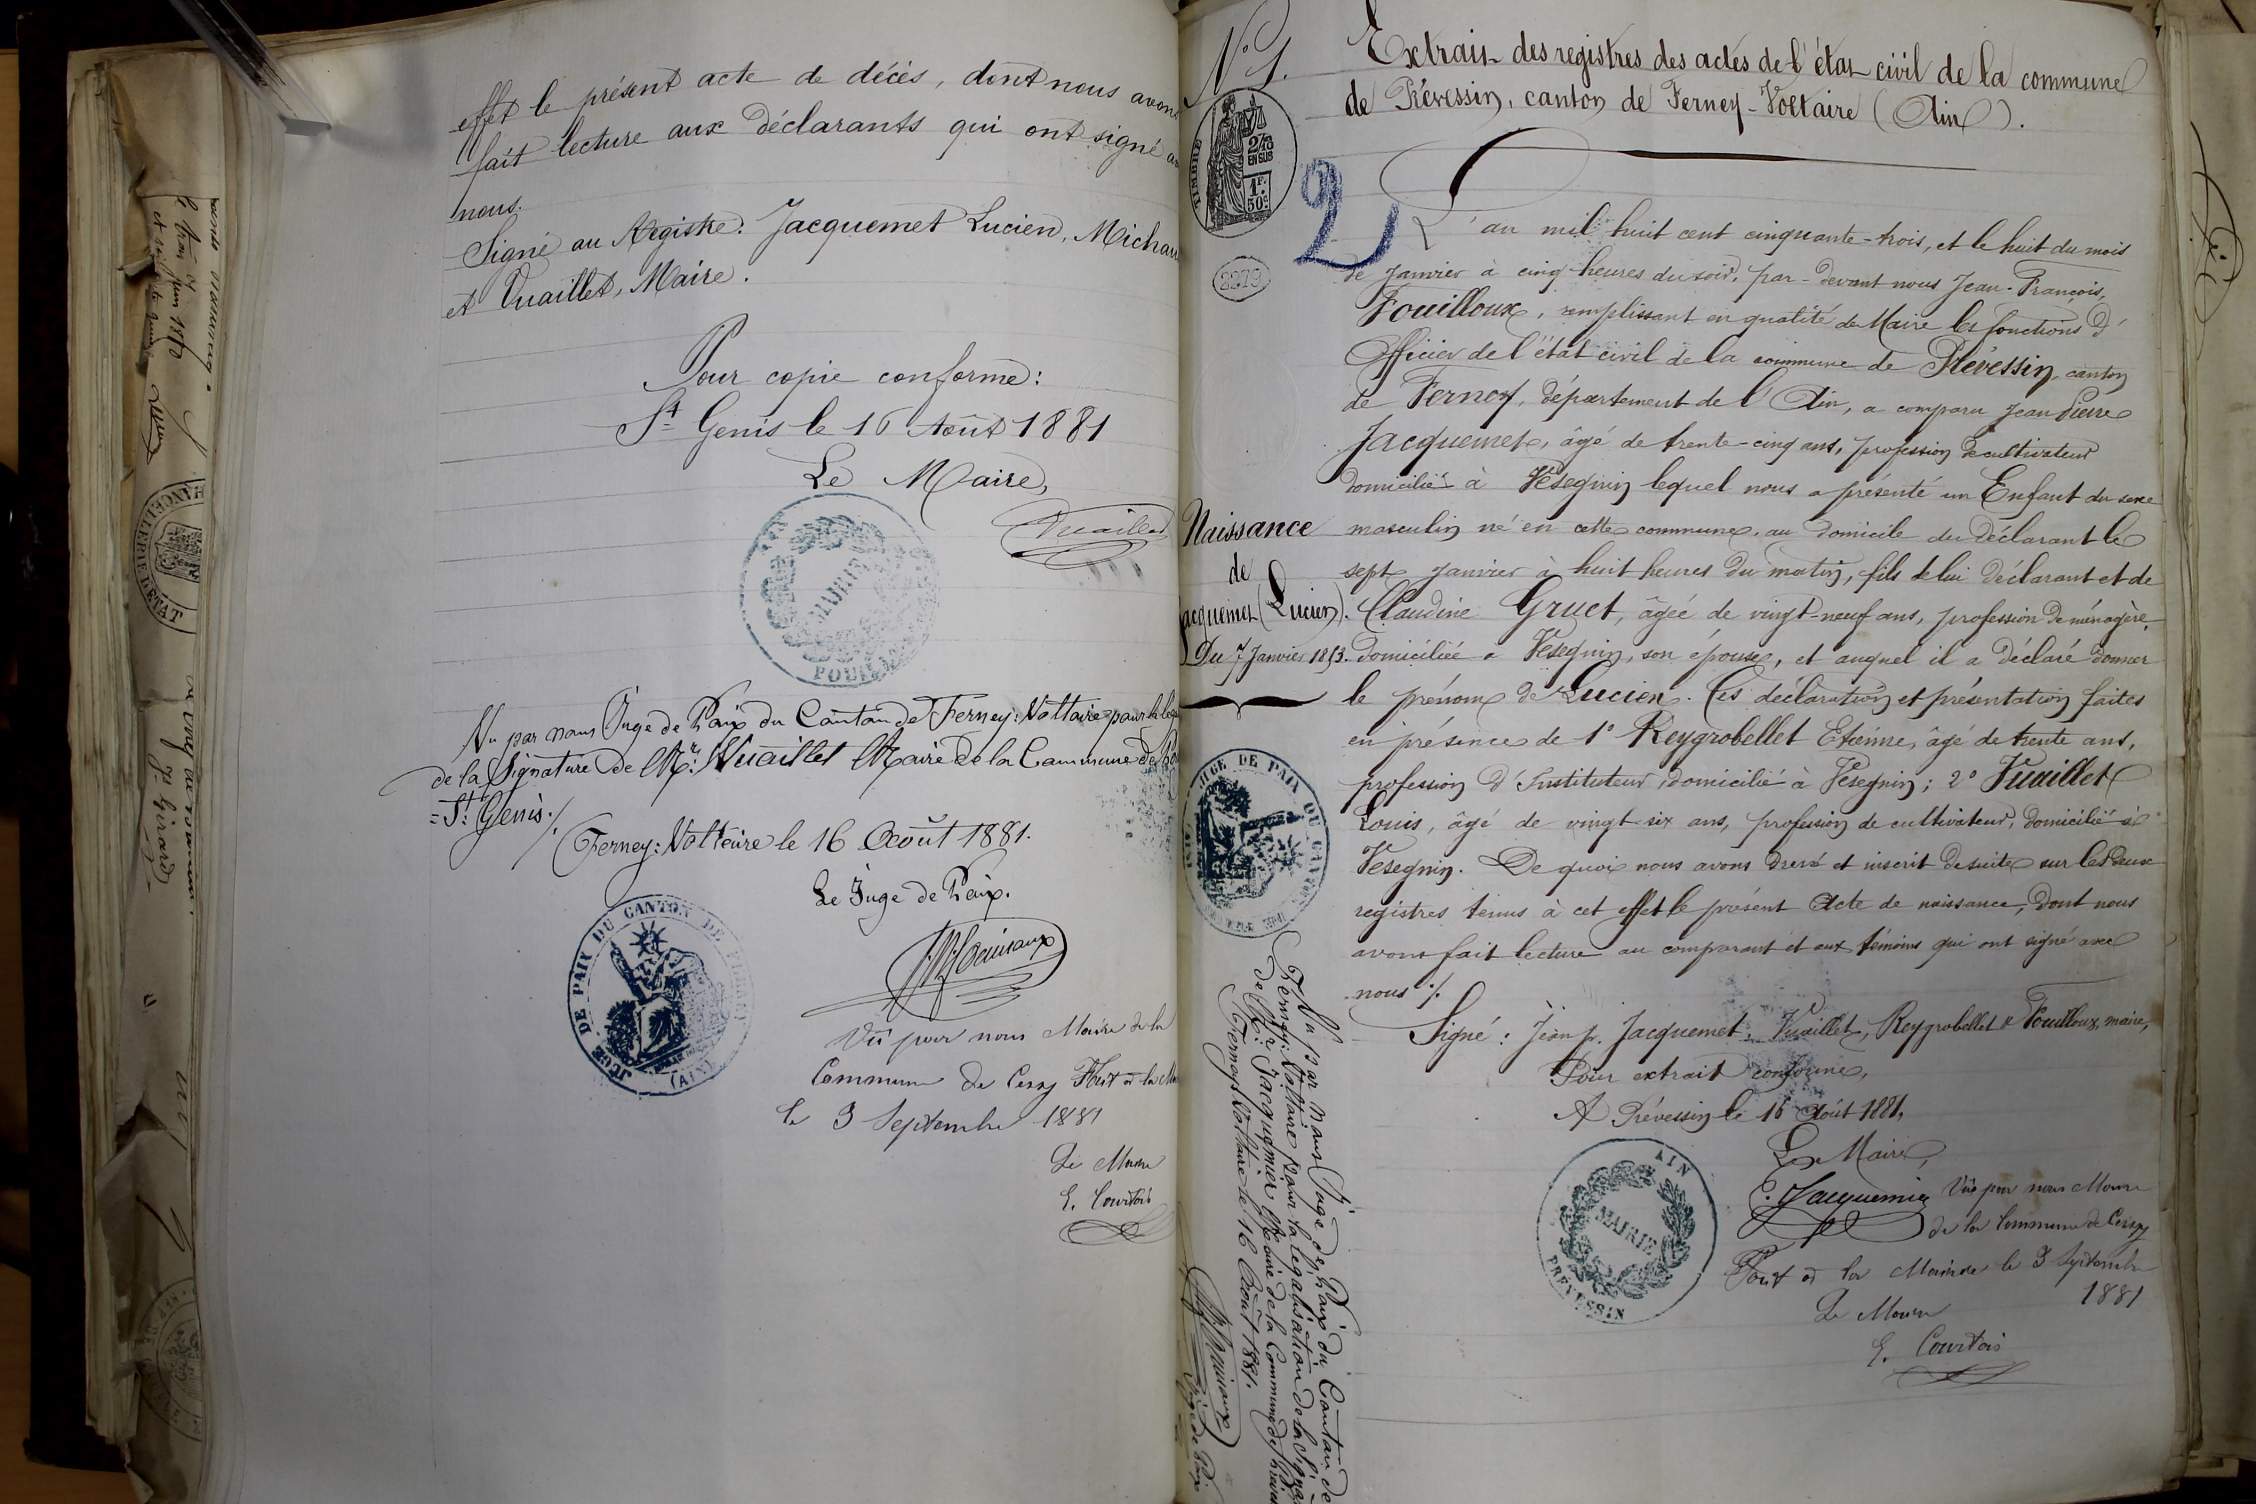 effet le présent acte de décès, dont nous avons
fait lecture aux déclarants qui ont signé
nous.
Signé au Registre. Jacquemet Lucien, Michau
et Vuaillet, Maire.
Pour copie conforme:
St Genis le 16 Août 1881
Le Maire,
Vuaillet
MAIRIE
Vu par nous Juge de Paix du Canton de Ferney-Voltaire pour la
de la Signature de Mr. Vuaillet Maire de la Commune de
=St Genis./.
Ferney-Voltaire le 16 Août 1881.
Le Juge de Paix.
JUGE DE PAIX DU CANTON DE FERNEY
(AIN)
Vu pour nous Maire de la
Commune de Cessy
le 3 Septembre 1881
Le Maire
E. Courtois
CHANCELLERIE D'ETAT
No 1.
Extrait des registres des actes de l'état civil de la commune
de Prévessin, canton de Ferney-Voltaire (Ain).
TIMBRE
2/10
EN SUS
1F.
50c
2
2273
L'an mil huit cent cinquante-trois, et le huit du mois
de janvier à cinq heures du soir, par-devant nous Jean-François,
Fouilloux, remplissant en qualité de Maire les fonctions d'
Officier de l'état civil de la commune de Prévessin, canton
de Ferney, département de l'Ain, a comparu Jean Pierre
Jacquemet, âgé de trente-cinq ans, profession de cultivateur
domicilié à Vésegnin lequel nous a présenté un Enfant du sexe
masculin né en cette commune, au domicile du déclarant le
sept janvier à huit heures du matin, fils de lui déclarant et de
Claudine Gruet, âgée de vingt-neuf ans, profession de ménagère,
domiciliée à Vésegnin, son épouse, et auquel il a déclaré donner
le prénom de Lucien. Ces déclaration et présentation faites
en présence de 1o Reygrobellet Etienne, âgé de trente ans,
profession d'Instituteur, domicilié à Vésegnin; 2o Vuaillet
Louis, âgé de vingt-six ans, profession de cultivateur, domicilié à
Vésegnin. De quoi nous avons dressé et inscrit de suite sur les deux
registres tenus à cet effet le présent Acte de naissance, dont nous
avons fait lecture au comparant et aux témoins qui ont signé avec
nous ./.
Signé: Jean p. Jacquemet, Vuaillet, Reygrobellet & Fouilloux, maire,
Pour extrait conforme,
A Prévessin le 16 Août 1881,
Le Maire,
Jacquemier
AIN
MAIRIE
PREVESSIN
Vu par nous Maire
de la Commune de Cessy
Fait à la Mairie le 3 Septembre
1881
Le Maire
E. Courtois
Naissance
de
Jacquemet (Lucien).
Du 7 Janvier 1853.
JUGE DE PAIX DU CANTON
Vu par nous Juge de Paix du Canton de
Ferney-Voltaire pour la légalisation de la
de Mr. Jacquemier Maire de la Commune de
Ferney-Voltaire le 16 Août 1881.
Juge de Paix